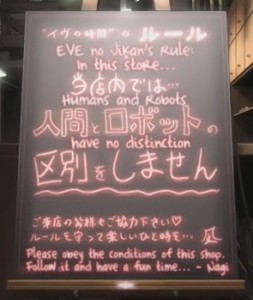 "イヴの時間" の ルール
EVE no Jikan's Rule:
In this store...
当店内では…
Humans and Robots
人間とロボットの
have no distinction
区別をしません
ご来店の皆様もご協力下さい♡
ルールを守って楽しいひと時を… 凪
Please obey the conditions of this shop.
Follow it and have a fun time... - Nagi